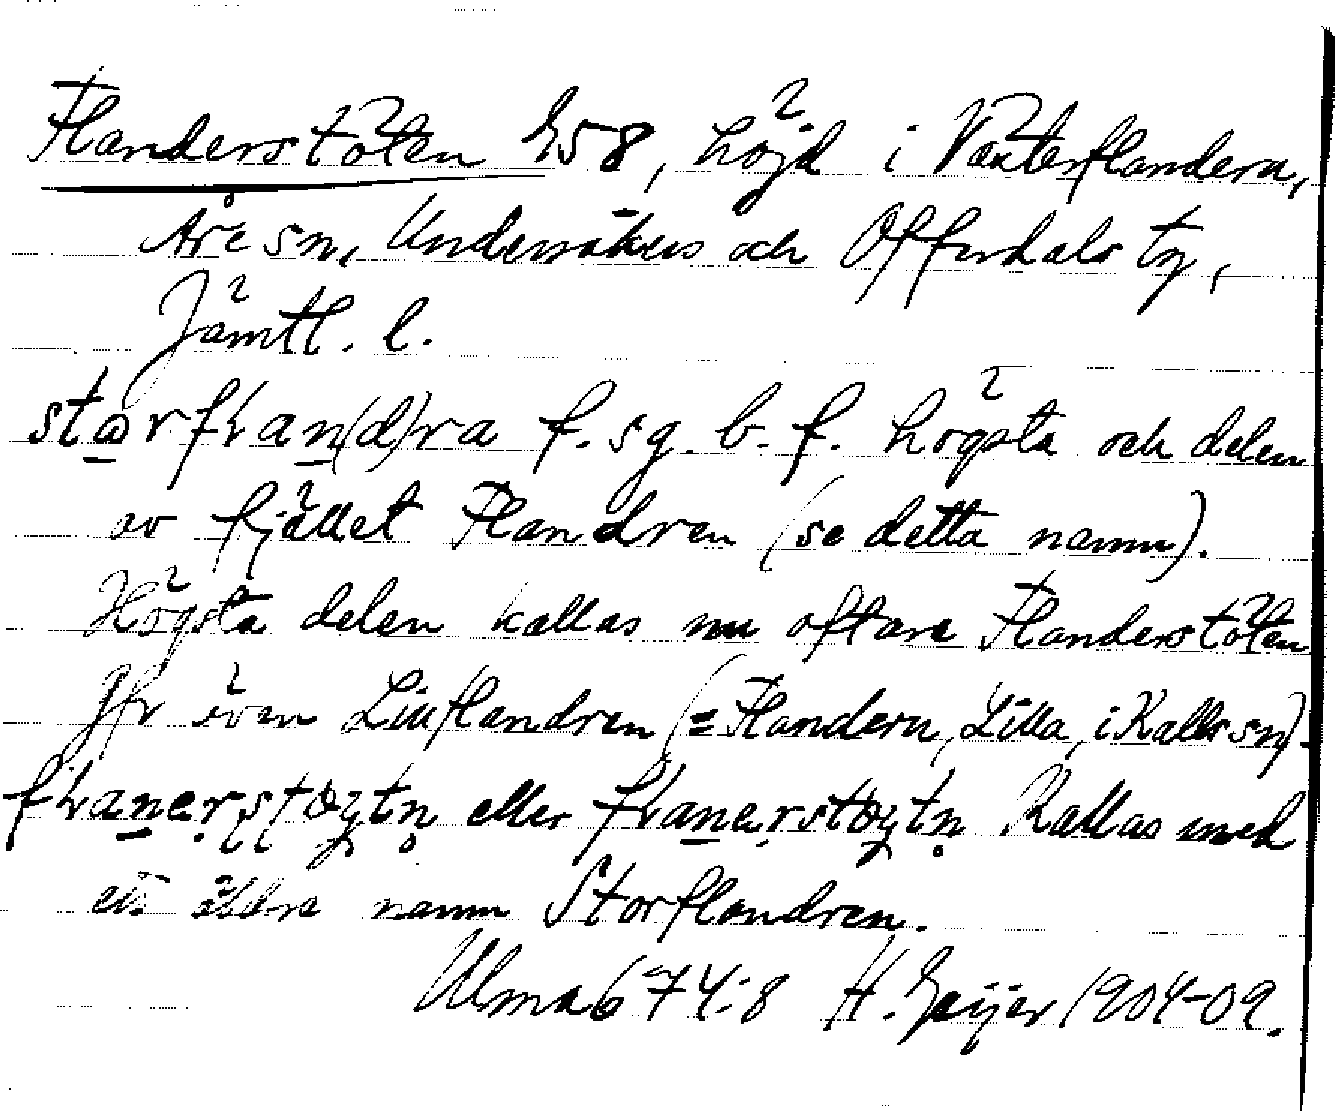 Flanderstöten G58, höjd i Västerflandern,
Åre sn, Undersåkers och Offerdals tg,
Jämtl. l.
storflan(d)ra f. sg. b. f. högsta och delen
av fjället Flandren (se detta namn).
Högsta delen kallas nu oftare Flanderstöten
Jfr även Lillflandren (= Flandern, Lilla, i Kalls sn).
eller Kallas med
ett äldre namn Storflandren.
Ulma 674:8 H. Geijer 1904-09.